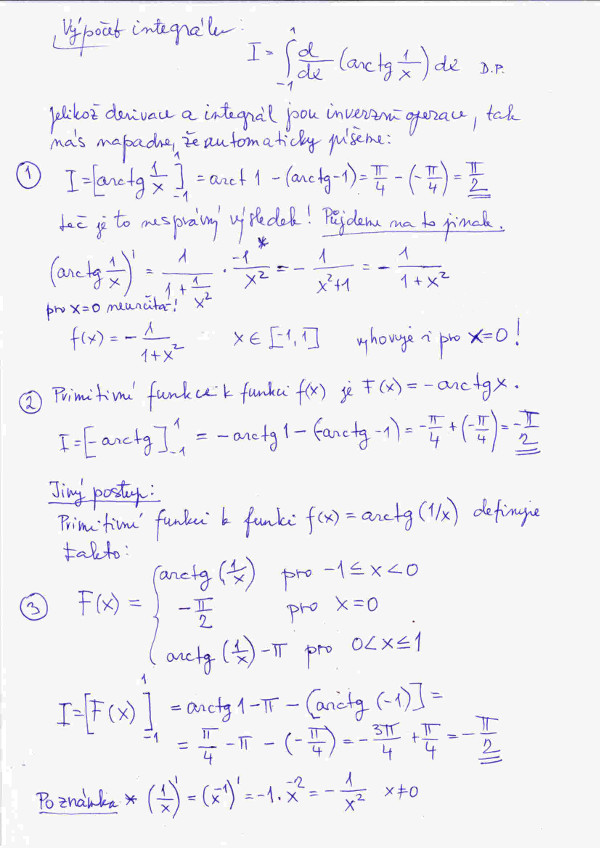 Výpočet integrálu:
I = ∫_{-1}^{1} d/dx (arctg 1/x) dx D.P.
Jelikož derivace a integrál jsou inverzní operace, tak
nás napadne, že automaticky píšeme:
① I = [arctg 1/x]_{-1}^{1} = arct 1 - (arctg-1) = π/4 - (-π/4) = π/2
což je to nesprávný výsledek! Půjdeme na to jinak.
(arctg 1/x)' = 1/(1+1/x²) · -1/x² * = - 1/(x²+1) = - 1/(1+x²)
pro x=0 neurčitá!
f(x) = - 1/(1+x²) x ∈ [-1,1] vyhovuje i pro x=0!
② Primitivní funkce k funkci f(x) je F(x) = -arctg x.
I = [-arctg]_{-1}^{1} = -arctg 1 - (-arctg -1) = -π/4 + (-π/4) = -π/2
Jiný postup:
Primitivní funkci k funkci f(x) = arctg (1/x) definuje
takto:
③ F(x) = { arctg (1/x) pro -1 ≤ x < 0
-π/2 pro x=0
arctg (1/x) - π pro 0 < x ≤ 1
I = [F(x)]_{-1}^{1} = arctg 1 - π - (arctg (-1)] =
= π/4 - π - (-π/4) = -3π/4 + π/4 = -π/2
Poznámka * (1/x)' = (x⁻¹)' = -1·x⁻² = - 1/x² x≠0